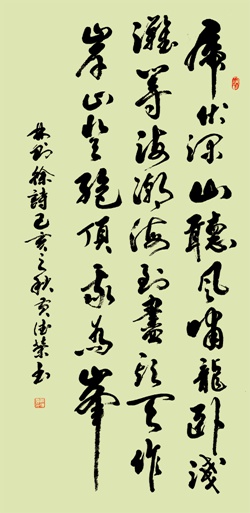 虎伏深山聽風嘯龍卧淺
灘等海潮海到盡頭天作
岸山登絕頂我為峰
林則徐詩己亥之秋賈德榮書